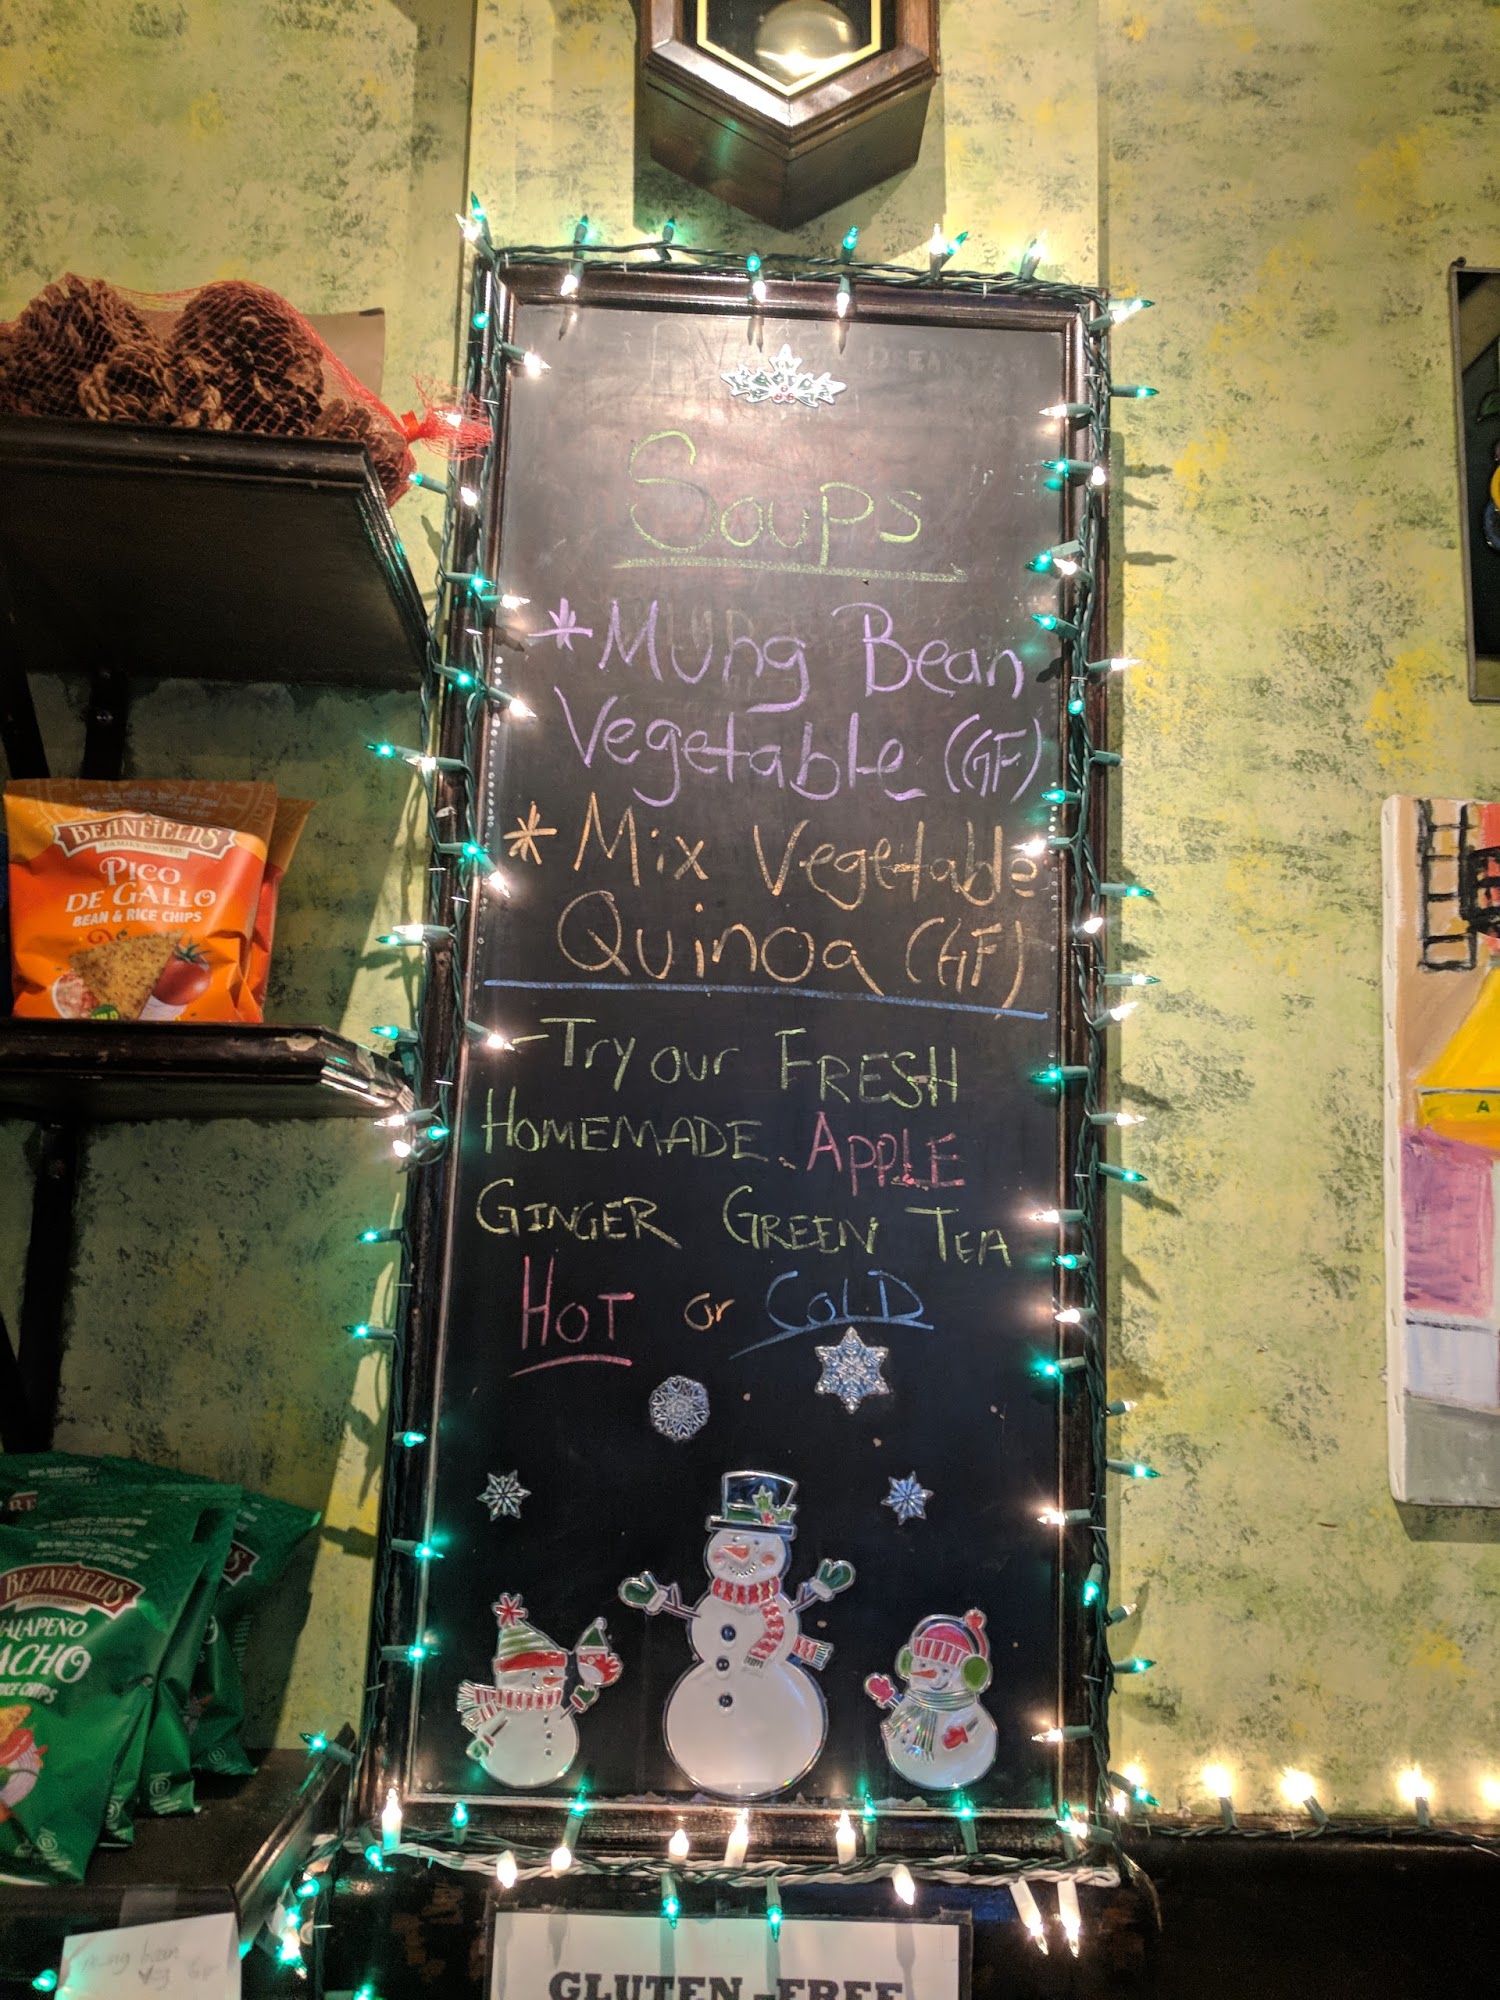 Soups
*Mung Bean
Vegetable (GF)
*Mix Vegetable
Quinoa (GF)
-Try our FRESH
HOMEMADE APPLE
GINGER GREEN TEA
HOT or COLD
BEANFIELDS
FAMILY OWNED
PICO
DE GALLO
BEAN & RICE CHIPS
BEANFIELDS
JALAPEÑO
NACHO
RICE CHIPS
mung bean
GLUTEN-FREE